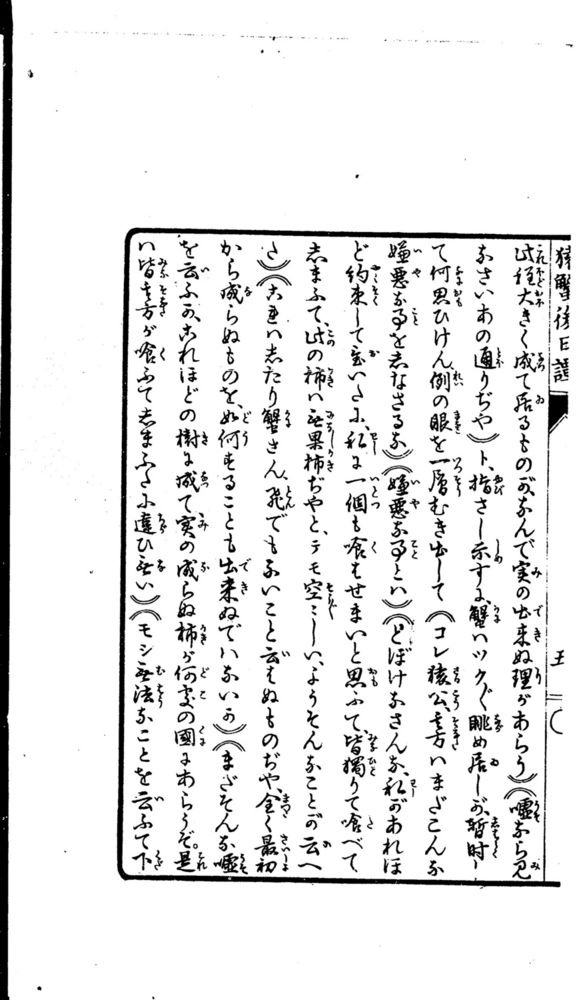 猿蟹後日譚
五
此程大きく成て居るものが、なんで実の出来ぬ理があらう)(嘘なら見
なさいあの通りぢや)ト、指さし示すに、蟹ハツク〲眺め居しが、暫时し
て何思ひけん、例の眼を一層むき出して(コレ猿公、其方ハまだこんな
嫌悪な事を志なさるな)(嫌悪な事とハ)(とぼけなさんな、私があれほ
ど約束して置いたに、私に一個も喰もせまいと思ふて、皆獨りて喰べて
志まふて、此の柿ハ無果柿ぢやと、テモ空〻しい、ようそんなことが云へ
た)(これハ志たり蟹さん、飛でもないこと云ばぬものぢや、全く最初
から成らぬものを、如何することも出来ぬでハないか)(まだそんな嘘
を云ふか、これほどの樹に成て実の成らぬ柿が何處の國にあらうぞ。是
ハ皆其方が喰ふて志まふたに違ひ無い)(モシ無法なことを云ふて下